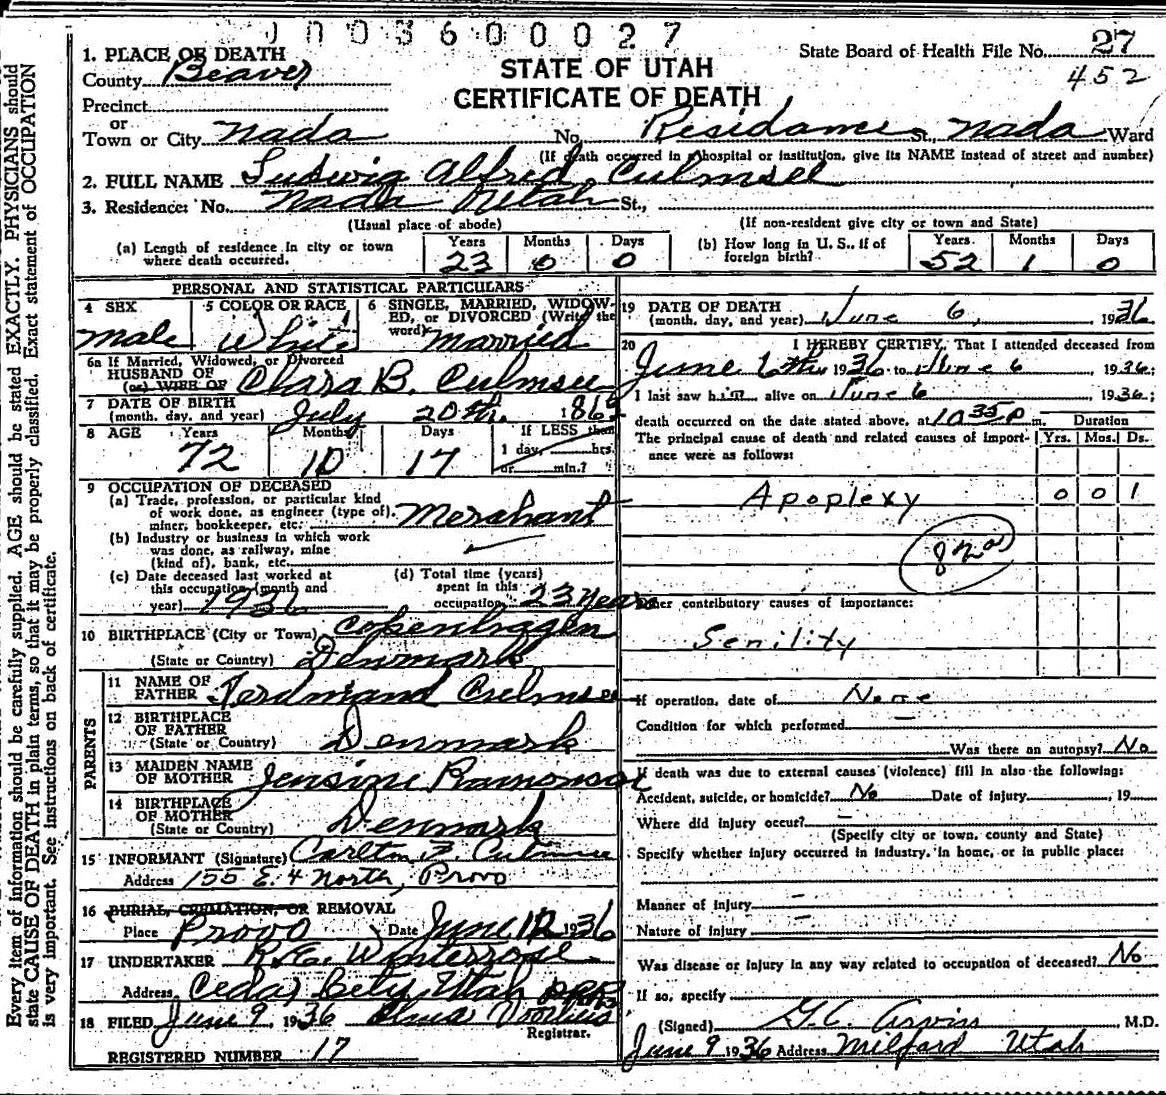 J N 0 3 6 0 0 0 2 7
1. PLACE OF DEATH
State Board of Health File No. 27
County Beaver
452
STATE OF UTAH
CERTIFICATE OF DEATH
Precinct
or
Town or City Nada No. Residance St., Nada Ward
(If death occurred in a hospital or institution, give its NAME instead of street and number)
2. FULL NAME Ludwig Alfred Culmsee
3. Residence: No. Nada Utah St.,
(Usual place of abode) (If non-resident give city or town and State)
(a) Length of residence in city or town where death occurred. Years 23 Months 0 Days 0
(b) How long in U. S., if of foreign birth? Years 52 Months 1 Days 0
PERSONAL AND STATISTICAL PARTICULARS
4 SEX male
5 COLOR OR RACE White
6 SINGLE, MARRIED, WIDOWED, or DIVORCED (Write the word) married
6a If Married, Widowed, or Divorced
HUSBAND OF
(or) WIFE OF Clara B. Culmsee
7 DATE OF BIRTH
(month, day, and year) July 20th. 1863
8 AGE Years 72 Months 10 Days 17 If LESS than 1 day, hrs. or min.?
9 OCCUPATION OF DECEASED
(a) Trade, profession, or particular kind
of work done, as engineer (type of),
miner, bookkeeper, etc. Merchant
(b) Industry or business in which work
was done, as railway, mine
(kind of), bank, etc.
(c) Date deceased last worked at
this occupation (month and
year) 1936
(d) Total time (years)
spent in this
occupation 23 years
10 BIRTHPLACE (City or Town) Copenhagen
(State or Country) Denmark
PARENTS
11 NAME OF
FATHER Ferdinand Culmsee
12 BIRTHPLACE
OF FATHER
(State or Country) Denmark
13 MAIDEN NAME
OF MOTHER Jensine
14 BIRTHPLACE
OF MOTHER
(State or Country) Denmark
15 INFORMANT (Signature) Carlton F. Culmsee
Address 155 E. 4 North, Provo
16 BURIAL, CREMATION, OR REMOVAL
Place Provo Date June 1936
17 UNDERTAKER
Address Cedar City Utah
18 FILED June 9, 1936 Elma Voorhees
Registrar.
REGISTERED NUMBER 17
19 DATE OF DEATH
(month, day, and year) June 6, 1936
20 I HEREBY CERTIFY, That I attended deceased from
June 6th 1936 to June 6 1936;
I last saw him alive on June 6 1936;
death occurred on the date stated above, at 10 35 P m. Duration
The principal cause of death and related causes of importance were as follows: Yrs. Mos. Ds.
Apoplexy 0 0 1
82a
Other contributory causes of importance:
Senility
If operation, date of None
Condition for which performed
Was there an autopsy? No
If death was due to external causes (violence) fill in also the following:
Accident, suicide, or homicide? No Date of injury , 19
Where did injury occur?
(Specify city or town, county and State)
Specify whether injury occurred in industry, in home, or in public place:
Manner of injury
Nature of injury
Was disease or injury in any way related to occupation of deceased? No
If so, specify
(Signed) G. C. M.D.
June 9 1936 Address Milford Utah
Every item of information should be carefully supplied. AGE should be stated EXACTLY. PHYSICIANS should
state CAUSE OF DEATH in plain terms, so that it may be properly classified. Exact statement of OCCUPATION
is very important. See instructions on back of certificate.